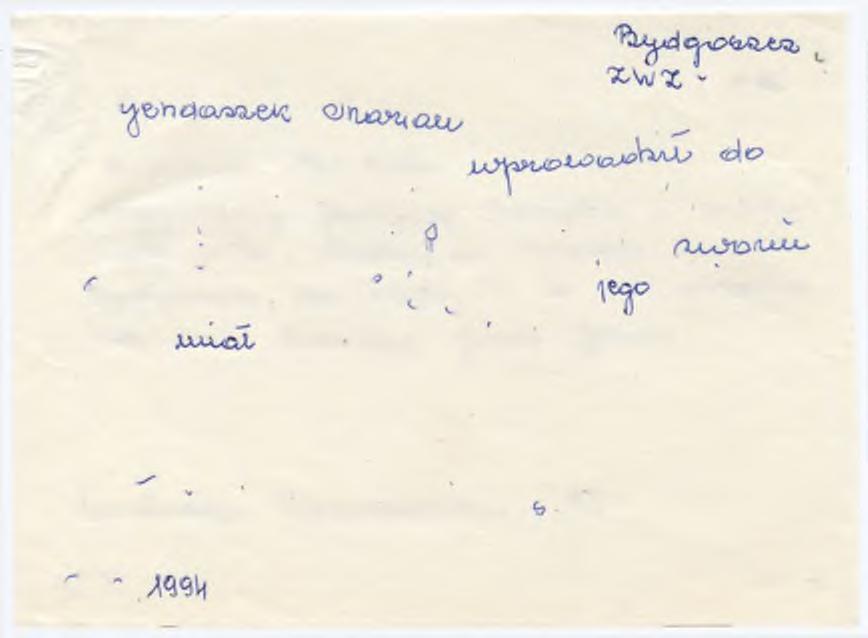 Bydgoszcz
ZWZ
Jendaszek Marian
wprowadził do
jego
miał
1994